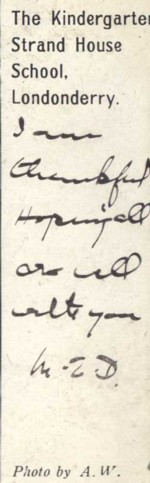 The Kindergarten
Strand House
School,
Londonderry.
I am
thankful
Hoping all
are well
with you
M-E-D.
Photo by A. W.